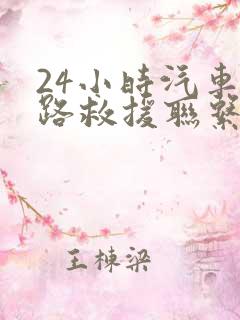 24小時汽車
路救援聯繫
王棟梁